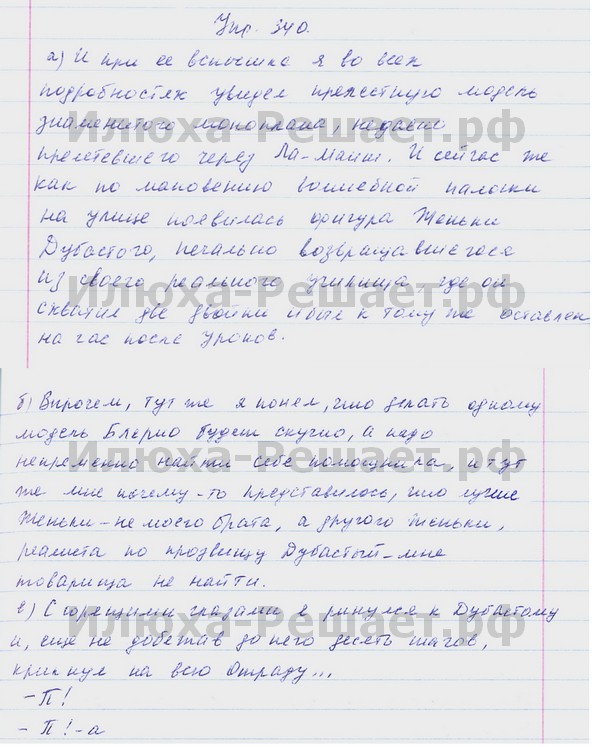 Упр. 340.
а) И при ее вспышке я во всех
подробностях увидел прелестную модель
знаменитого моноплана, недавно
пролетевшего через Ла-Манш. И сейчас же
как по мановению волшебной палочки
на улице появилась фигура Женьки
Дубастого, печально возвращавшегося
из своего реального училища где он
схватил две двойки и был к тому же оставлен
на час после уроков.
б) Впрочем, тут же я понял, что делать одному
модель Блерио будет скучно, а надо
непременно найти себе помощника, и тут
же мне почему-то представилось, что лучше
Женьки – не моего брата, а другого Женьки,
реалиста по прозвищу Дубастый – мне
товарища не найти.
в) С горящими глазами я ринулся к Дубастому
и, еще не добежав до него десять шагов,
крикнул на всю Отраду...
– П!
– П! – а
Илюха-Решает.рф
Илюха-Решает.рф
Илюха-Решает.рф
Илюха-Решает.рф
Илюха-Решает.рф